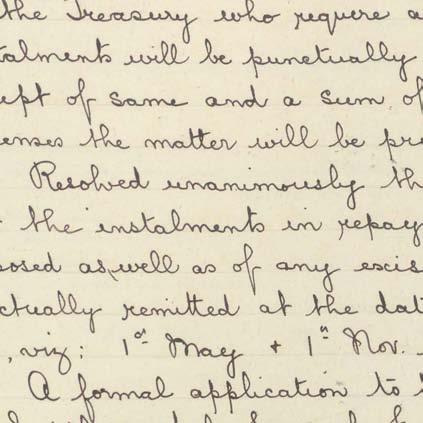 the Treasury who require a
talments will be punctually
eipt of same and a sum of
enses the matter will be pr
Resolved unanimously th
the instalments in repay
posed as well as of any exis
ctually remitted at the dat
, viz: 1st May + 1st Nov.
A formal application to